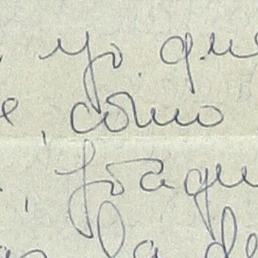 , yo que
e, como
, Joaqu
la de